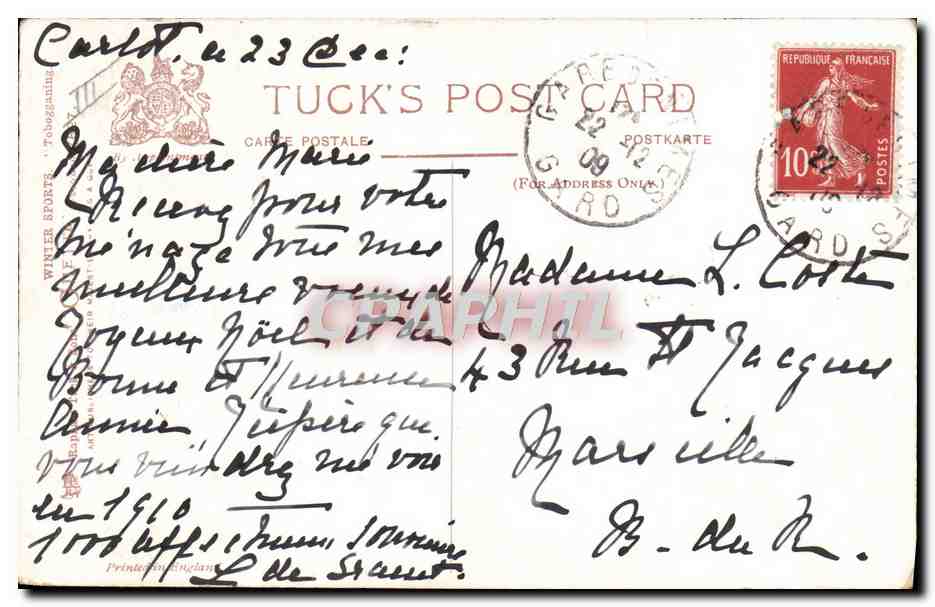 le 23 Dec:
TUCK'S POST CARD
CARTE POSTALE
POSTKARTE
(FOR ADDRESS ONLY.)
REPUBLIQUE FRANÇAISE
10
POSTES
22
12
09
GARD
GARD
WINTER SPORTS. Tobogganing.
III
Ma chère Marie
Recevez pour votre
ménage tous mes
meilleurs voeux de
Joyeux Nöel et de
Bonne et Heureuse
année, J'espère que
vous viendrez me voir
en 1910
1000 affectueux souvenirs
L de
Printed in England
Madame L. Coste
43 Rue St Jacques
Marseille
B. du R.
CPAPHIL